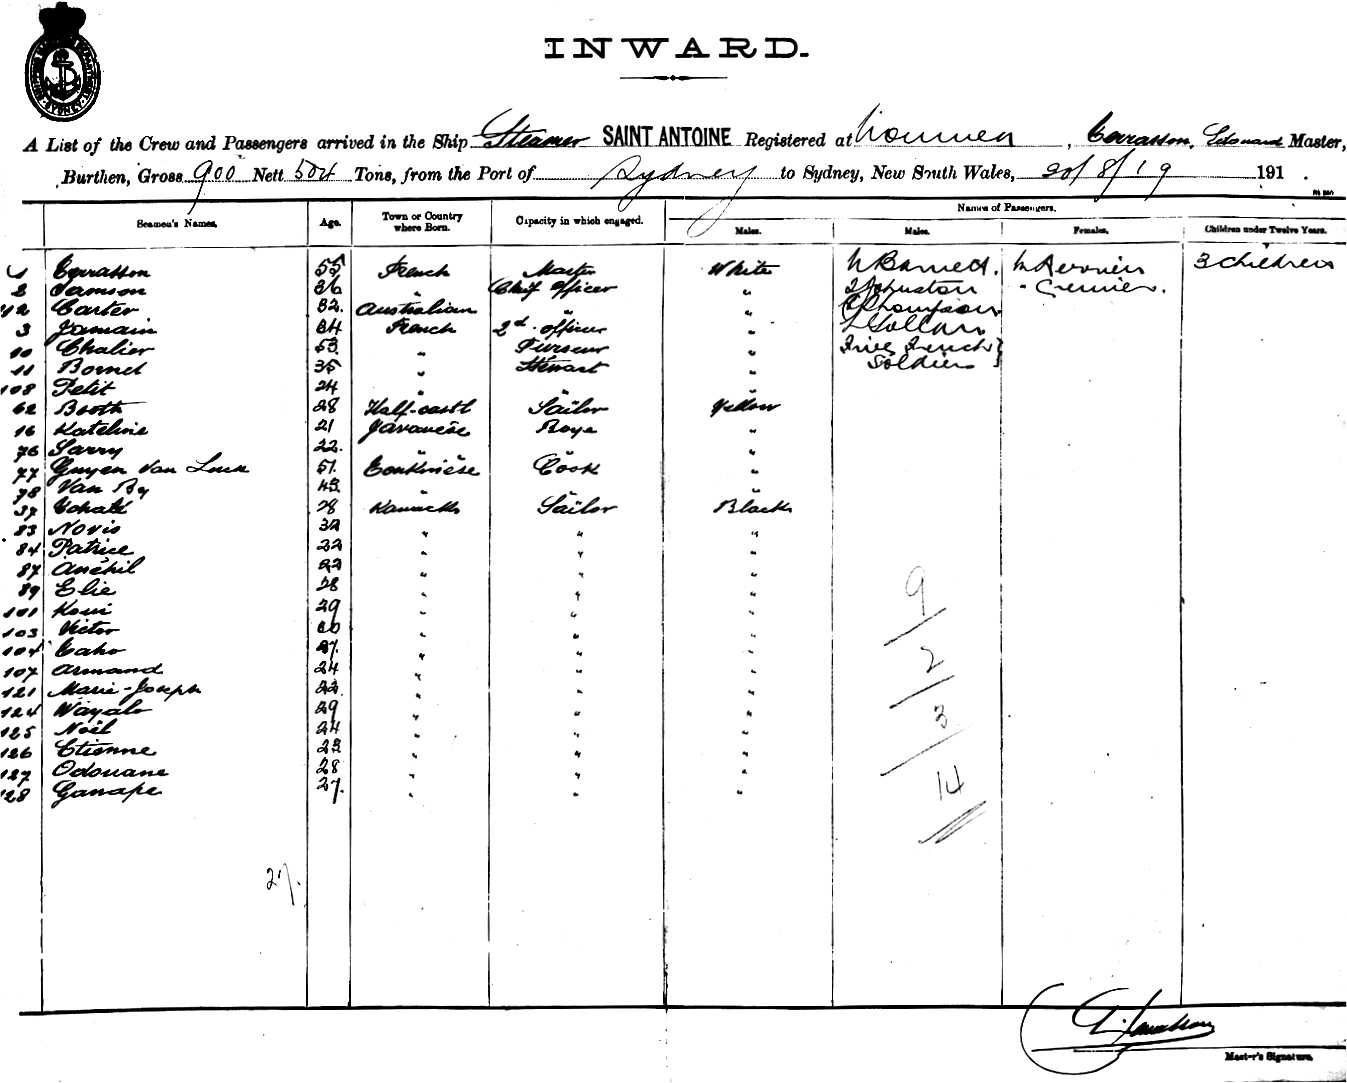 INWARD.
A List of the Crew and Passengers arrived in the Ship Steamer SAINT ANTOINE Registered at Noumea, Cerrasson, Edouard Master,
Burthen, Gross 900 Nett 504 Tons, from the Port of Sydney to Sydney, New South Wales, 20/8/19 191 .
Names of Passengers.
Seamen's Names. Age. Town or Country where Born. Capacity in which engaged. Males. Males. Females. Children under Twelve Years.
1 Cerrasson 55 French Master White Barnett. 3 Children
2 Samson 36 " Chief Officer " Johnston " Crenier.
42 Carter 32. Australian " " Thompson
3 Jamain 34 French 2d officer "
10 Chalier 53 " Purseur " Five French }
11 Bornet 35 " Stewart " Soldiers }
108 Petit 24 " " "
62 Booth 28 Half-castt Sailor Yellow
16 Kateline 21 Javanese Boys "
76 Sarry 22. " " "
77 Guyen Van Luu 51. Tonkinese Cook "
78 Van By 43. " " "
37 28 Kanack Sailor Black
83 Novis 32 " " "
84 Patrice 22 " " "
87 Anéhil 22 " " "
89 Elie 28 " " "
101 Koui 29 " " "
103 Victor 20 " " "
104 Caho 27. " " "
107 Armand 24 " " "
121 Marie-Joseph 22 " " "
124 Wayalo 29 " " "
125 Noël 24 " " "
126 Etienne 22 " " "
127 Odouane 28 " " "
128 Ganape 27. " " "
9
2
3
14
27.
Master's Signature.